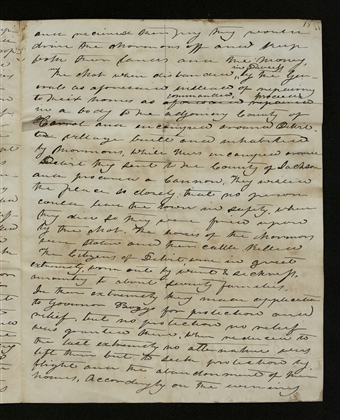 and recieved their pay they would
drive the Mormons off and keep
both their lands and the money.
The Mob when disbanded, by the Gen-
in Daviess
erals as aforesaid instead of repairing
to their homes as commanded, proceeded
in a body to the adjoining County of
Carroll and encamped around Dewit
a village built and inhabited
by Mormons, while thus encamped around
Dewit they sent to the County of Jackson
and procured a Cannon, they invested
the place so closely that no person
could leave the town in safety, when
they did so they were fired upon
by the Mob. The horses of the Mormons
were stolen and their cattle killed
The Citizens of Dewit, were in great
extremity, worn out by want & sickness,
amounting to about seventy families.
In their extremity they made application
to Governor Boggs for protection and
relief, but no protection no relief
was granted them, when reduced to
the last extremity no alternative was
left them but to seek protection by
flight and the abandonment of their
homes, Accordingly on the evening